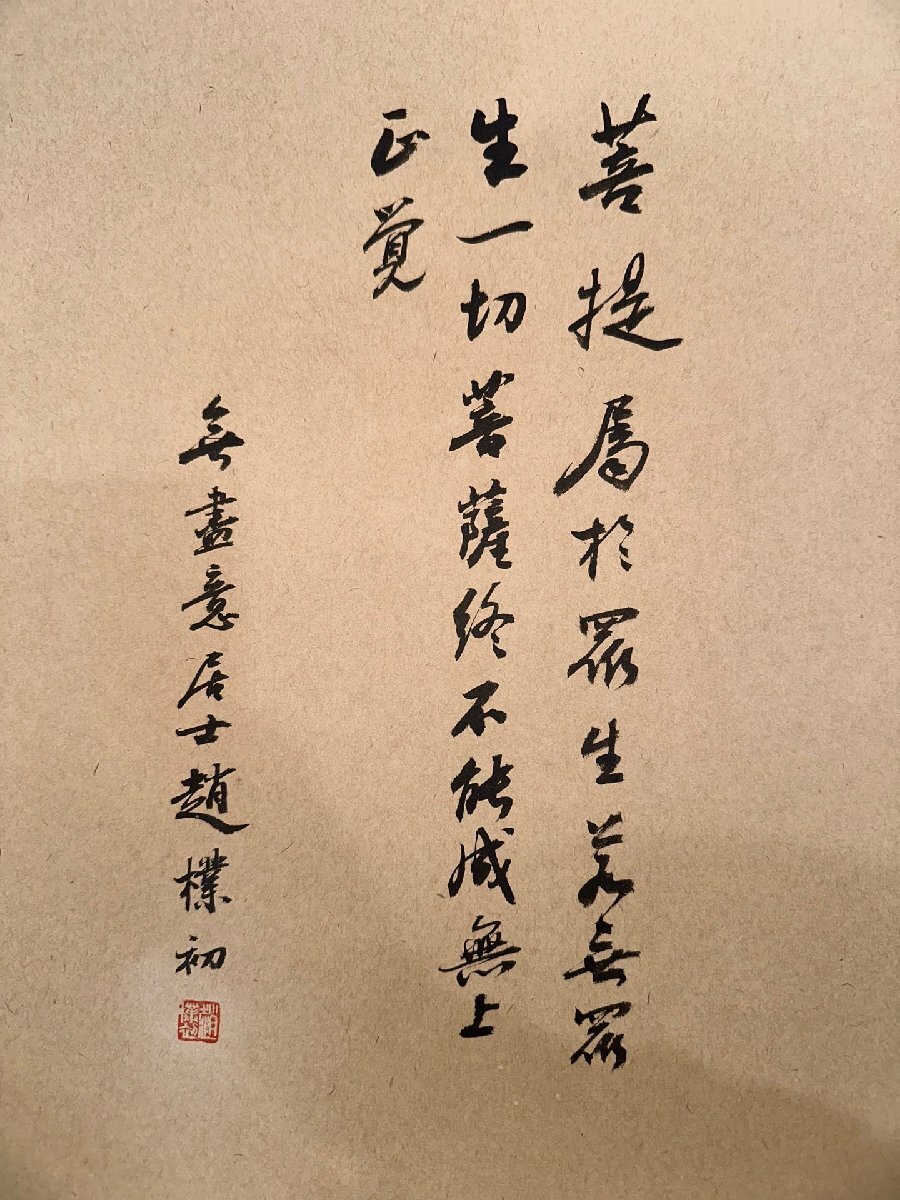 菩提属於眾生若無眾
生一切菩薩終不能成無上
正覺
無盡意居士趙樸初
趙樸初